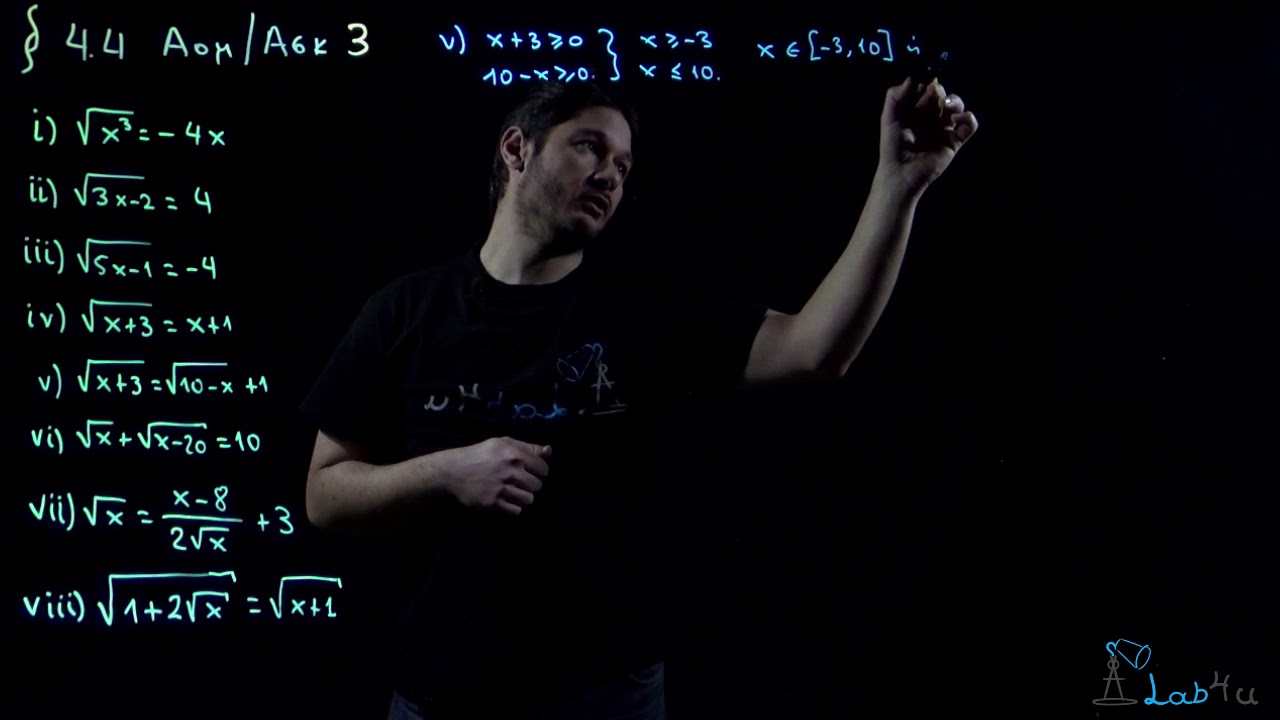 § 4.4 Λυμ/Ασκ 3
i) √x³ = - 4x
ii) √3x-2 = 4
iii) √5x-1 = -4
iv) √x+3 = x+1
v) √x+3 = √10-x +1
vi) √x + √x-20 = 10
vii) √x = x-8 / 2√x + 3
viii) √1+2√x = √x+1
v) x+3 ⩾ 0 } x ⩾ -3 x ∈ [-3,10]
10-x ⩾ 0. x ≤ 10.
Lab4u